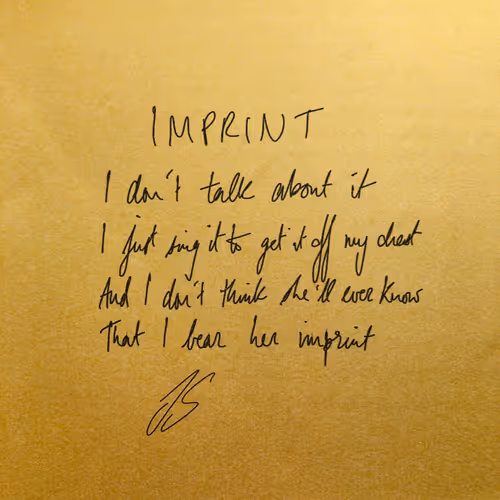 IMPRINT
I don't talk about it
I just sing it to get it off my chest
And I don't think she'll ever know
That I bear her imprint
JS